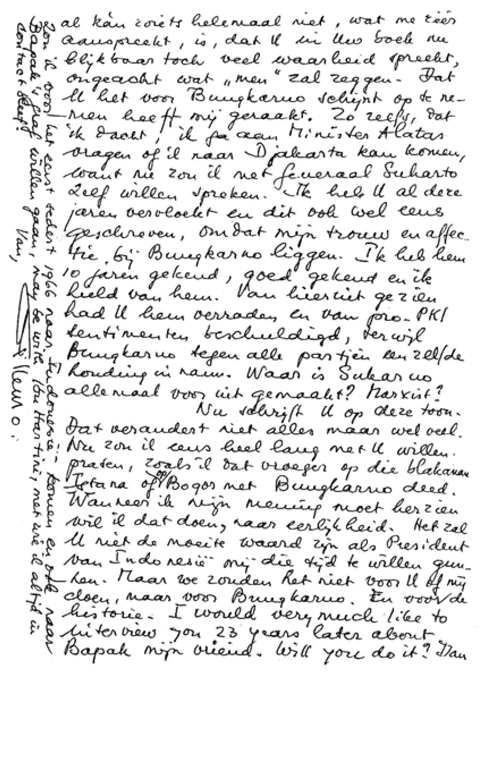 al kán zoiets helemaal niet, wat me zéér
aanspreekt, is, dat U in Uw boek nu
blijkbaar toch veel waarheid spreekt,
ongeacht wat „men” zal zeggen. Dat
U het voor Bungkarno schijnt op te ne-
men heeft mij geraakt. Zo zeer, dat
ik dacht, ik ga aan Minister Alatas
vragen of ik naar Djakarta kan komen,
want nu zou ik met Generaal Suharto
zelf willen spreken. Ik heb U al deze
jaren vervloekt en dit ook wel eens
geschreven, omdat mijn trouw en affec-
tie bij Bungkarno liggen. Ik heb hem
10 jaren gekend, goed gekend en ik
hield van hem. Van hieruit gezien
had U hem verraden en van pro-PKI
sentimenten beschuldigd, terwijl
Bungkarno tegen alle partijen een zelfde
houding in nam. Waar is Sukarno
allemaal voor uit gemaakt? Marxist?
Nu schrijft U op deze toon.
Dat verandert niet alles maar wel veel.
Nu zou ik eens heel lang met U willen
praten, zoals ik dat vroeger op die blakanan
Istana of op Bogor met Bungkarno deed.
Wanneer ik mijn mening moet herzien
wil ik dat doen, naar eerlijkheid. Het zal
U niet de moeite waard zijn als President
van Indonesië mij die tijd te willen gun-
nen. Maar we zouden het niet voor U of mij
doen, maar voor Bungkarno. En voor de
historie. I would very much like to
interview you 23 years later about
Bapak mijn vriend. Will you do it? Dan
zou ik voor het eerst sedert 1966 naar Indonesië komen en ook naar
Bapak's graf willen gaan, may be with Ibu Hartini, met wie ik altijd in
contact bleef!
Van,